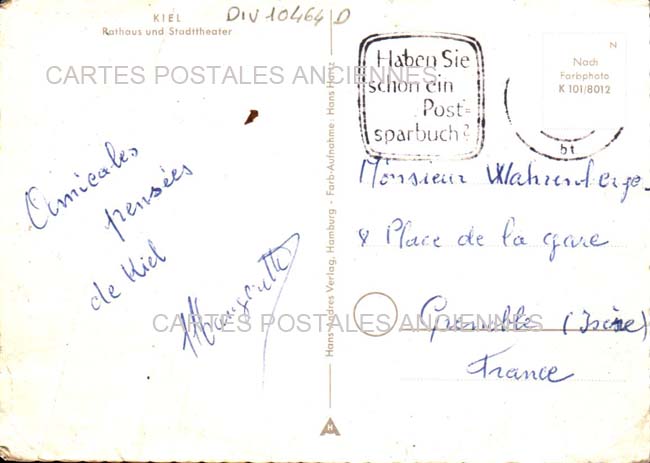 KIEL
Rathaus und Stadttheater
DIV 10464 D
CARTES POSTALES ANCIENNES
Amicales
pensées
de Kiel
Hans Andres Verlag, Hamburg - Farb-Aufnahme: Hans Hartz
H
Haben Sie
schon ein
Post-
sparbuch?
bt
N
Nach
Farbphoto
K 101/8012
Monsieur
8 Place de la gare
Grenoble (Isère)
France
CARTES POSTALES ANCIENNES